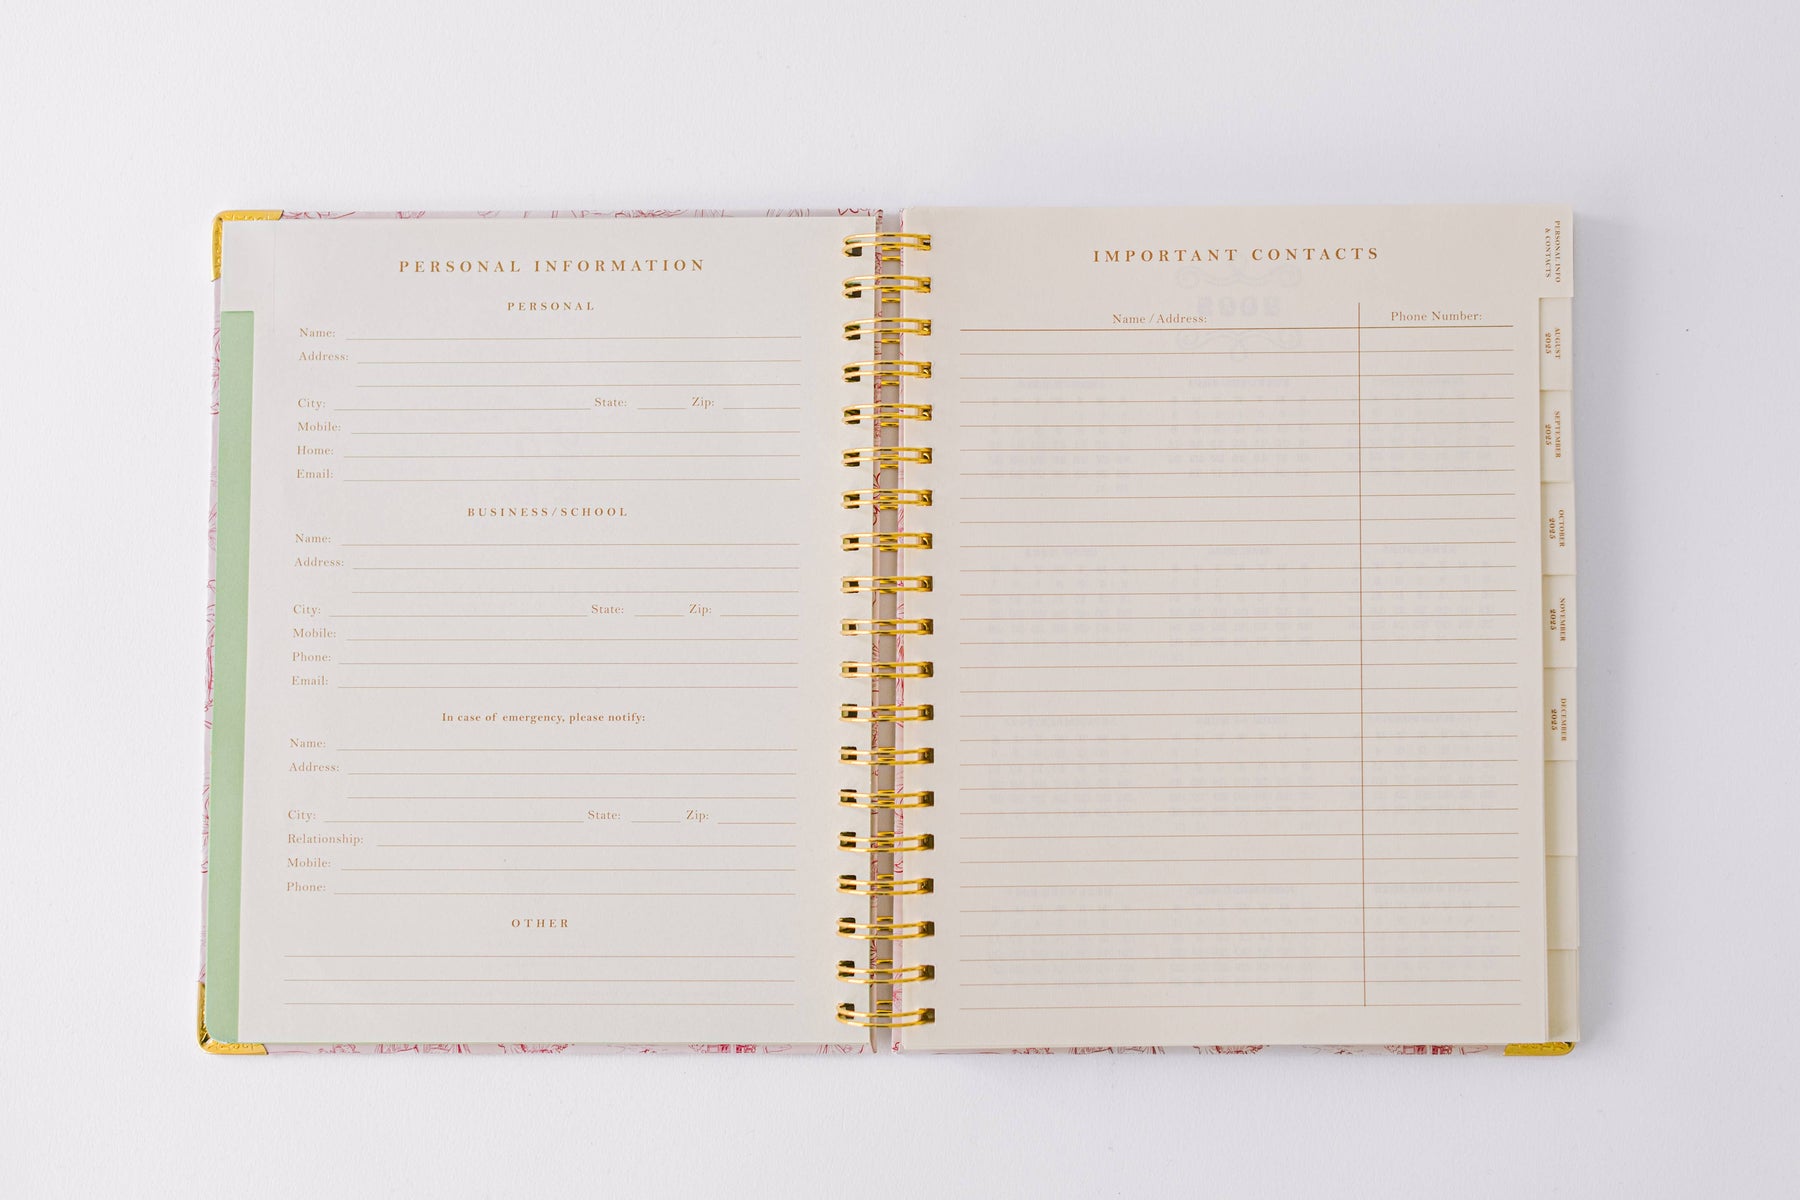 PERSONAL INFORMATION
PERSONAL
Name:
Address:
City: State: Zip:
Mobile:
Home:
Email:
BUSINESS/SCHOOL
Name:
Address:
City: State: Zip:
Mobile:
Phone:
Email:
In case of emergency, please notify:
Name:
Address:
City: State: Zip:
Relationship:
Mobile:
Phone:
OTHER
IMPORTANT CONTACTS
Name/Address: Phone Number:
PERSONAL INFO
& CONTACTS
AUGUST
2025
SEPTEMBER
2025
OCTOBER
2025
NOVEMBER
2025
DECEMBER
2025